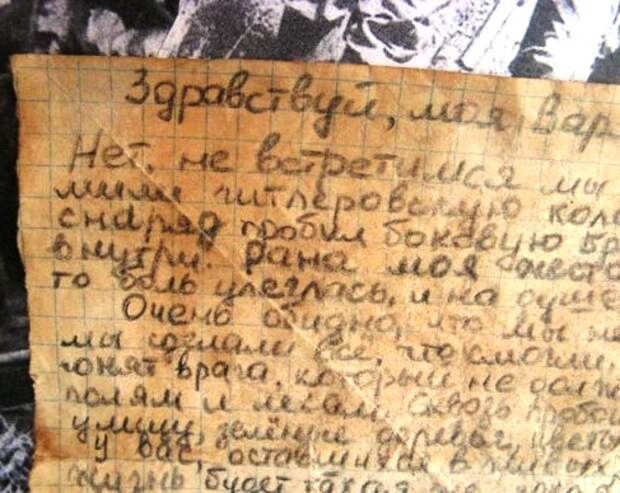 Здравствуй, моя Вар
Нет, не встретимся мы
мили гитлеровскую коло
снаряд пробил боковую бр
внутри. Рана моя жесто
то боль улеглась, и на душе
Очень обидно, что мы не
мы сделали все, что смогли.
гонят врага, который не долж
полям и лесам. Сквозь пробои
улицу, зелёные деревья, цветы
у вас, оставшихся в живых,
жизнь будет такая же